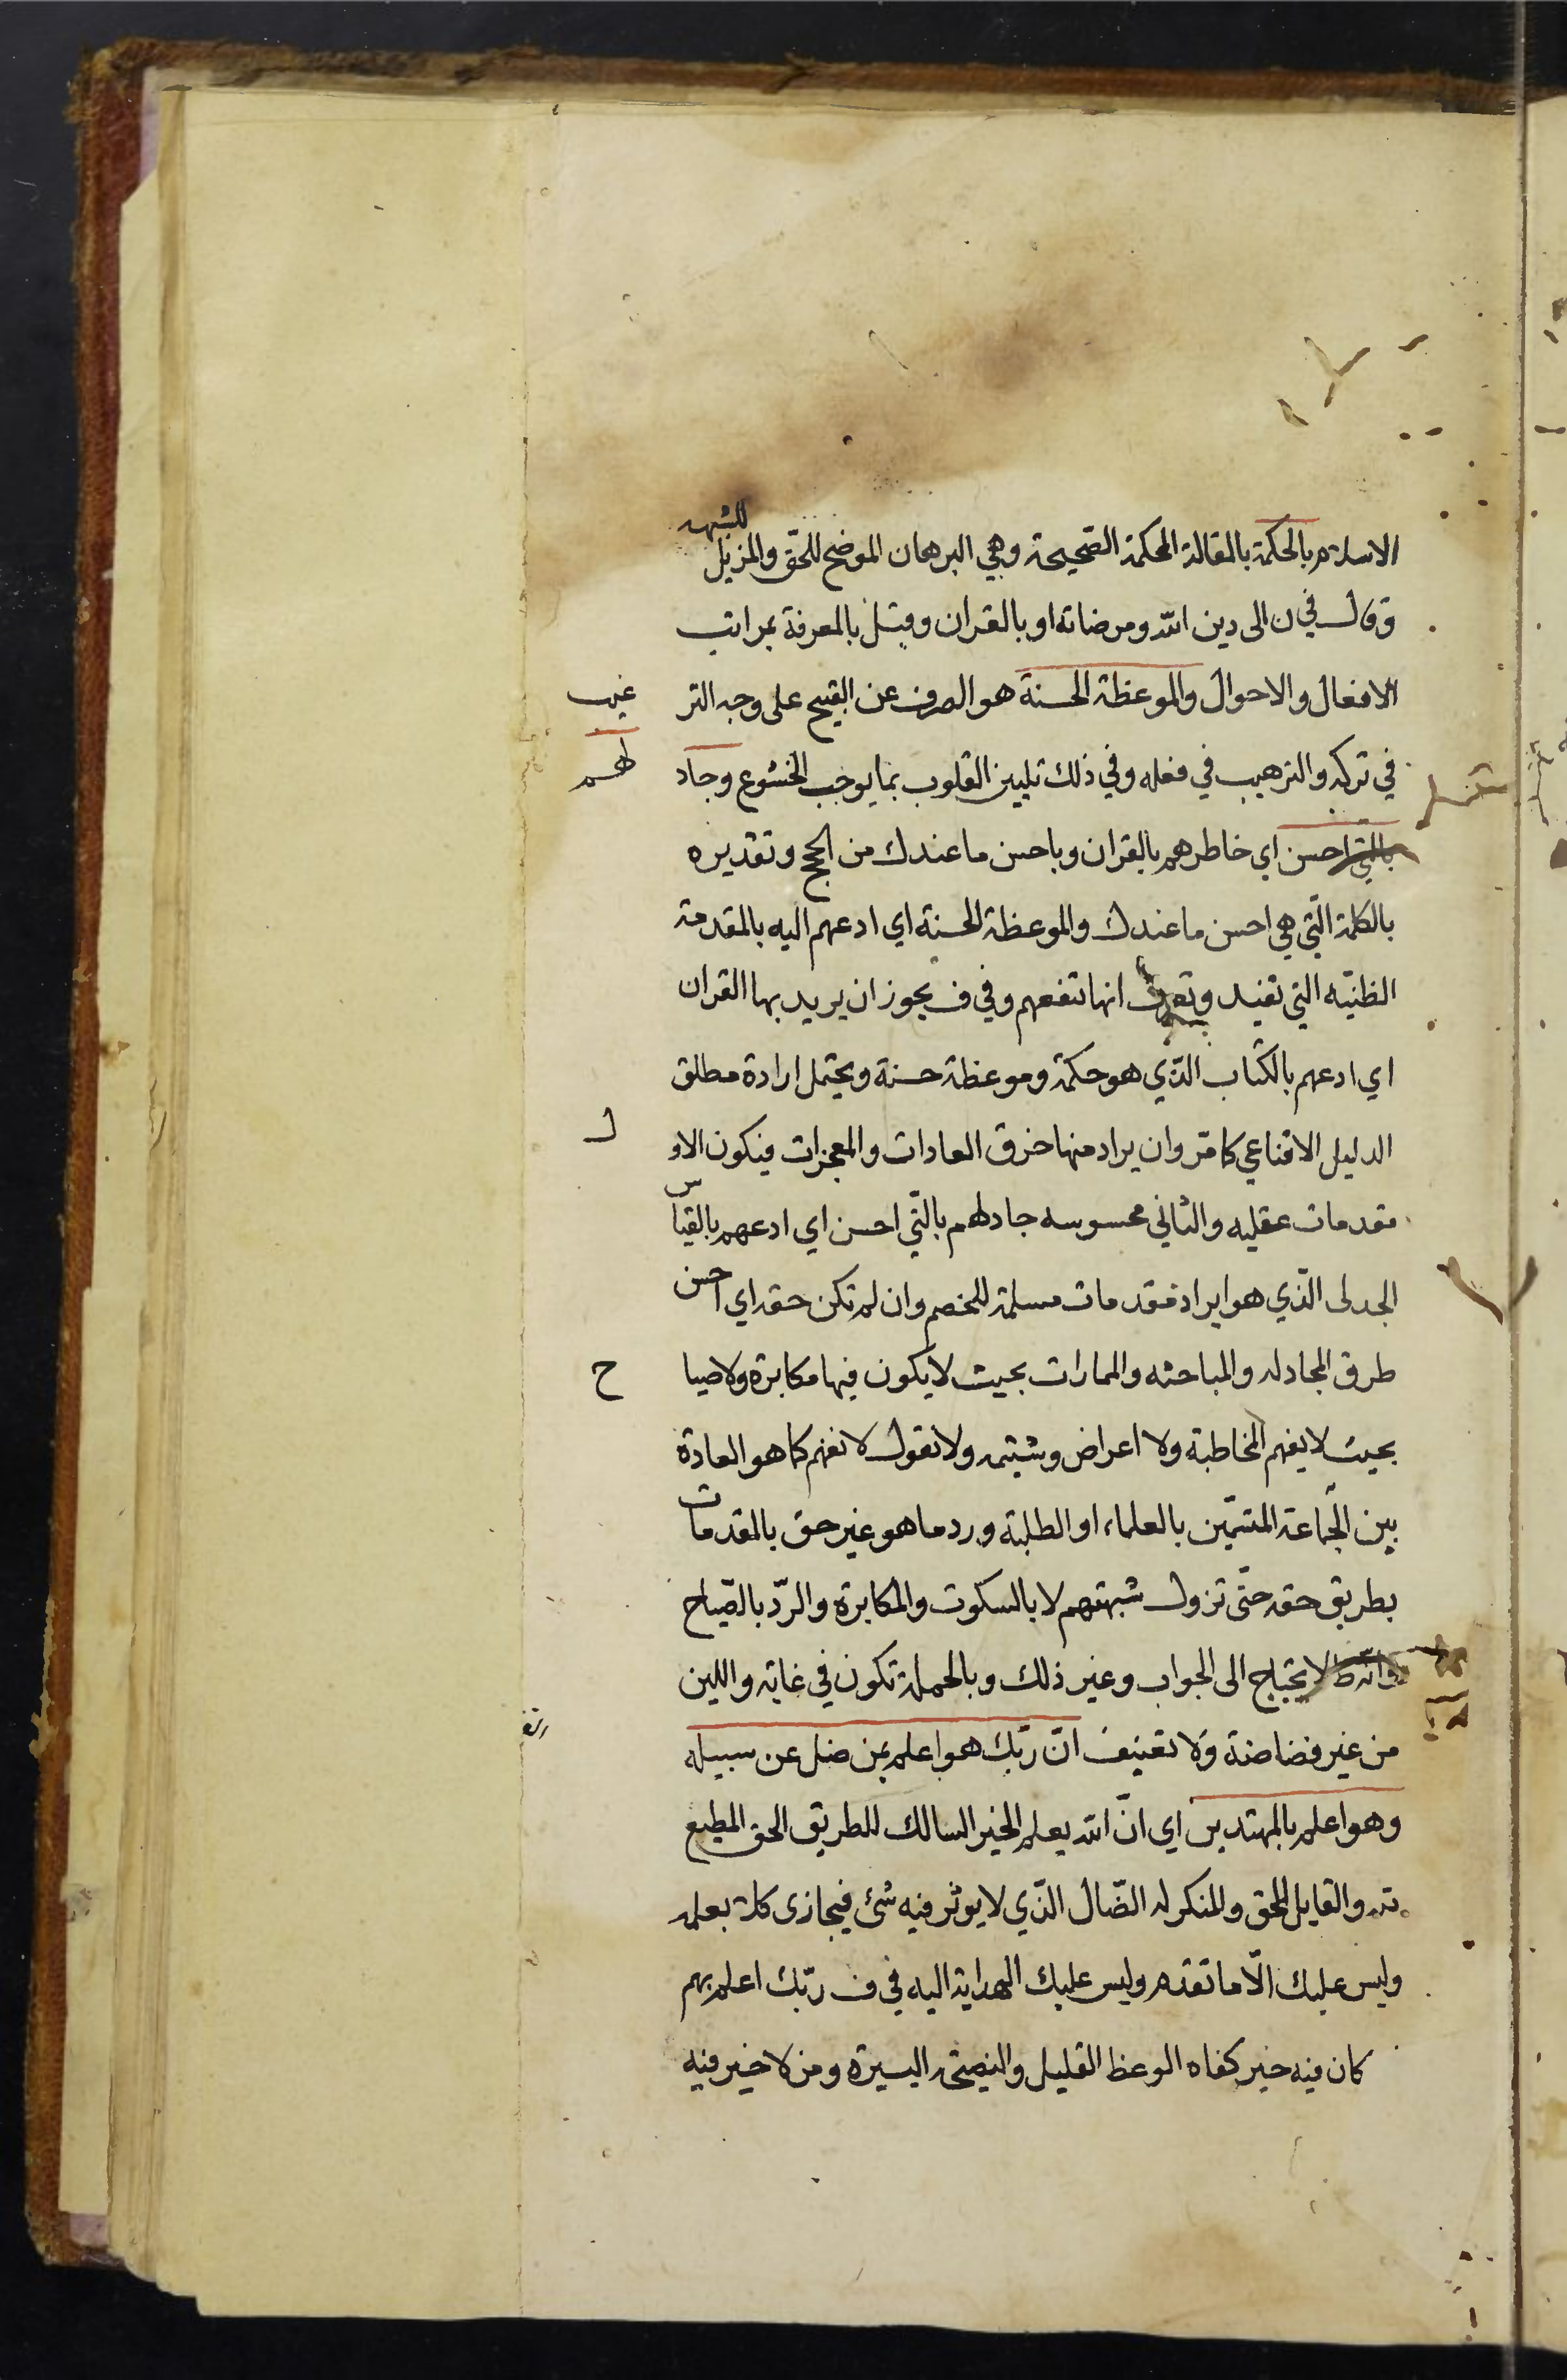 الاسلام بالحكمة بالمقالة المحكمة الصّحيحة وهي البرهان الموضح للحّق والمزيل للشبهه
وقال في ن الى دين الله ومرضاته او بالقران وقيل بالمعرفة بمراتب
الافعال والاحوال والموعظة الحسنة هو الصرف عن القبيح على وجه التر غيب
في تركه والترهيب في فعله وفي ذلك تليين القلوب بما يوجب الخشوع وجاد لهم
بالتي احسن اي خاطرهم بالقران وباحسن ما عندك من الحجج وتقديره
بالكلمة الّتي هي احسن ما عندك والموعظة الحسنة اي ادعهم اليه بالمقدمة
الظنيّه التي تفيد وتعرف انها تنفعهم وفي ف يجوز ان يريد بها القران
اي ادعهم بالكتاب الذّي هو حكمة وموعظة حسنة ويحتمل ارادة مطلق
الدليل الاقناعي كما مّر وان يراد منها خرق العادات والمعجزات فيكون الاو ل
مقدمات عقليه والثاني محسوسه جادلهم بالّتي احسن اي ادعهم بالقياس
الجدلى الذّي هو ايراد مقدمات مسلمة للخصم وان لم تكن حقه اي احسن
طرق المجادله والمباحثه والممارات بحيث لا يكون فيها مكابرة ولا صيا ح
بحيث لا يفهم المخاطبة ولا اعراض وشيتمه ولا تقول لا تفهم كما هو العادة
بين الجّماعة المتسمّين بالعلماء او الطلبة ورد ما هو غير حق بالمقدمات
بطريق حقه حتّى تزول شبهتهم لا بالسكوت والمكابرة والرّد بالصّياح
وانّه لا يحتاج الى الجواب وغير ذلك وبالجملة تكون في غاية واللين
من غير فضاضة ولا تعنيف انّ ربّك هو اعلم بمن ضل عن سبيله
وهو اعلم بالمهتدين اي انّ الله يعلم الخير السالك للطريق الحق المطيع
له والقايل للحق والمنكر له الضّال الذّي لا يوثر فيه شئ فيجازى كلا بعلمه
وليس عليك الّا ما تقدم وليس عليك الهداية اليه في ف ربّك اعلم بهم
كان فيه خير كفاه الوعظ القليل والنيصحة اليسيرة ومن لا خير فيه